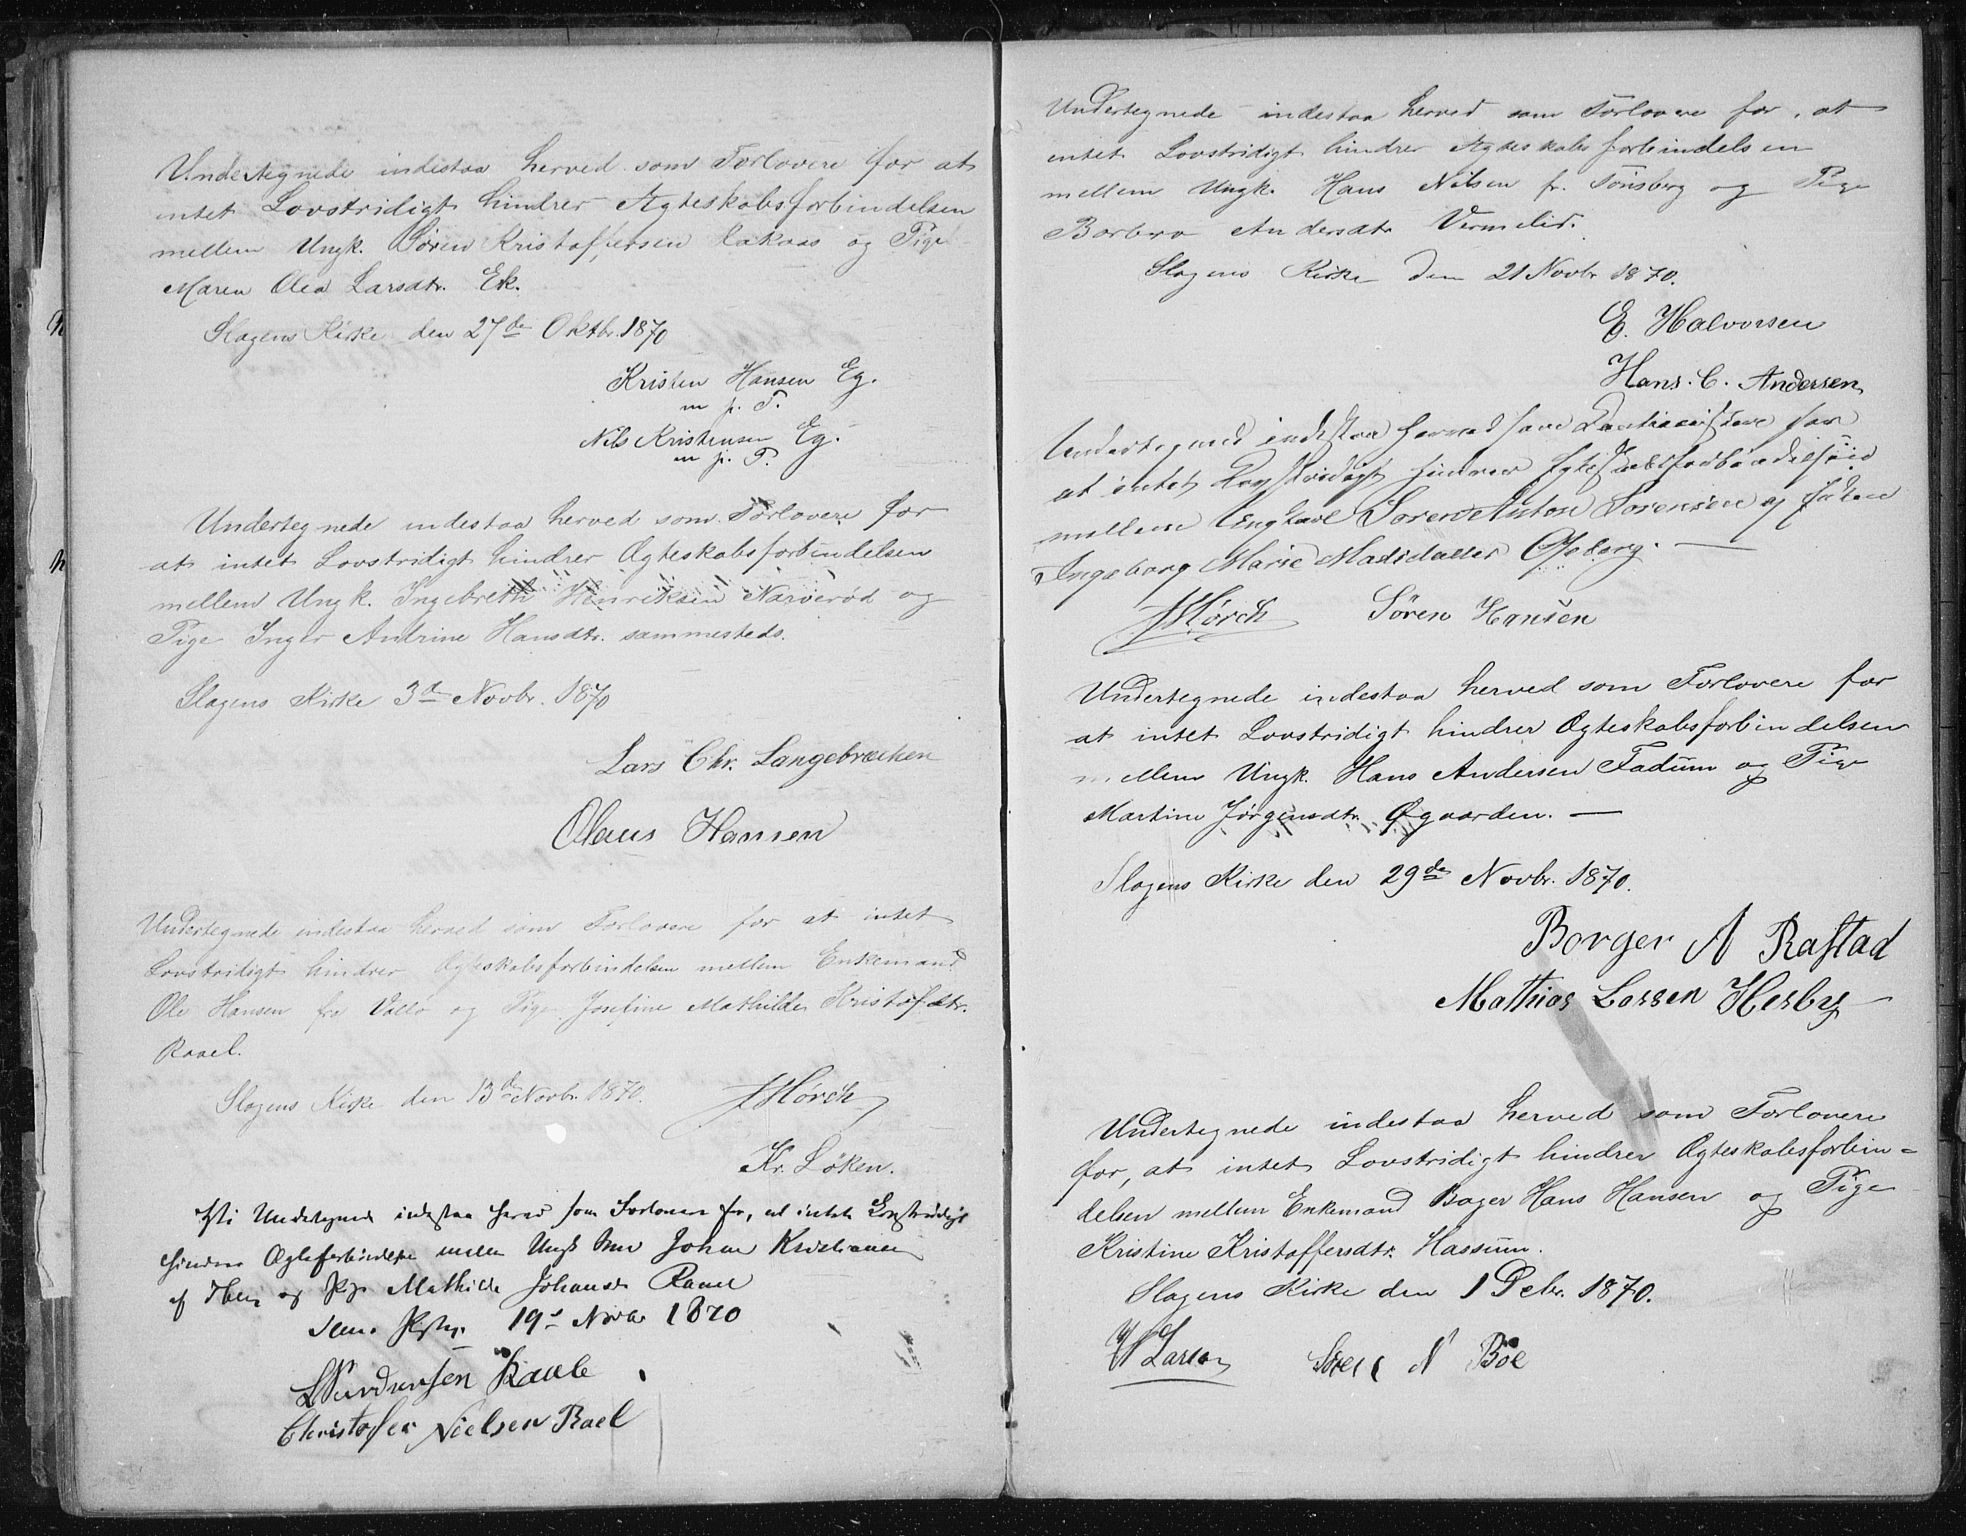 Undertegnede indestaa herved som Forlovere for at
intet Lovstridigt hindrer Ægteskabsforbindelsen
mellem Ungk. Søren Kristoffersen og Pige
Maren Olea Larsdtr. Ek.
Slagens Kirke den 27de Oktbr. 1870
Kristen Hansen Eg.
m p. P.
Nils Kristensen Eg.
m p. P.
Undertegnede indestaa herved som Forlovere for
at intet Lovstridigt hindrer Ægteskabsforbindelsen
mellem Ungk. Ingebreth Henriksen Narverød og
Pige Inger Andrine Hansdtr. sammesteds.
Slagens Kirke 3de Novbr. 1870
Lars Chr. Langebrækken
Olaus Hansen
Undertegnede indestaa herved som Forlovere for at intet
Lovstridigt hindrer Ægteskabsforbindelsen mellem Enkemand
Ole Hansen fra Vallø og Pige Josefine Mathilde Kristofdtr.
Raael.
Slagens Kirke den 13de Novbr. 1870.
Hørch
Kr. Løken.
Undertegnede indestaa herved som Forlovere for, at intet Lovstridigt
hindrer Ægteforbindelse mellem Ungk Johan Kristiansen
af og Pige Mathilde Johansd Raael
19de Novbr 1870
Raale
Christoffer Nielsen Rael
Undertegnede indestaa herved som Forlovere for, at
intet Lovstridigt hindrer Ægteskabsforbindelsen
mellem Ungk. Hans Nilsen fr. Tønsberg og Pige
Barbro Andersdtr Vermelid.
Slagens Kirke den 21 Novbr 1870.
E. Halvorsen
Hans. C. Andersen
Undertegnede indestaa herved som for
at intet Lovstridigt hindrer Ægteskabsforbindelsen
mellem Ungkarl Søren Anton Sørensen og Piken
Ingeborg Marie Madsdatter Ofeborg. —
Hørch Søren Hansen
Undertegnede indestaa herved som Forlovere for
at intet Lovstridigt hindrer Ægteskabsforbindelsen
mellem Ungk. Hans Andersen Fadum og Pige
Martine Jørgensdtr. Øgaarden. —
Slagens Kirke den 29de Novbr. 1870.
Borger A Rastad
Mathias Larsen Hesby
Undertegnede indestaa herved som Forlovere
for, at intet Lovstridigt hindrer Ægteskabsforbin=
delsen mellem Enkemand Bager Hans Hansen og Pige
Kristine Kristoffersdtr. Hassum.
Slagens Kirke den 1 Debr. 1870.
Larsen Søren N Bøe